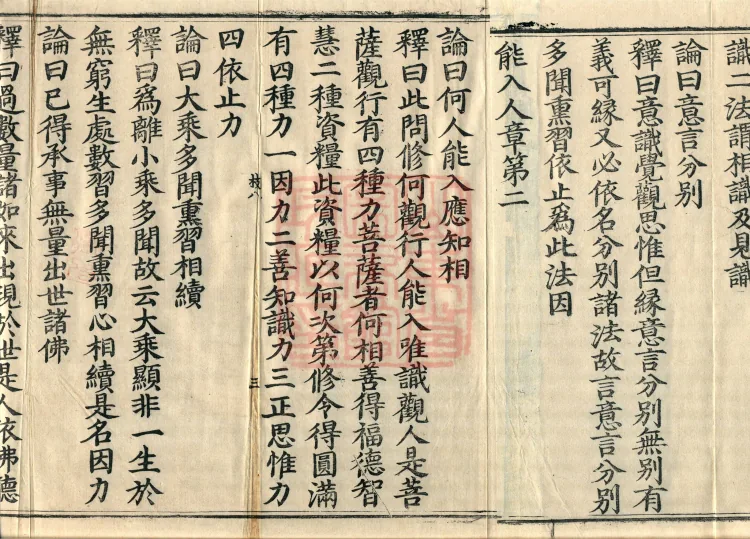 識二法謂相識及見識
論曰意言分別
釋曰意識覺觀思惟但縁意言分別無別有
義可縁又必依名分別諸法故言意言分別
多聞熏習依止爲此法因
能入人章第二
論曰何人能入應知相
釋曰此問修何觀行人能入唯識觀人是菩
薩觀行有四種力菩薩者何相善得福德智
慧二種資糧此資糧以何次第修令得圓滿
有四種力一因力二善知識力三正思惟力
四依止力
論曰大乘多聞熏習相續
釋曰爲離小乘多聞故云大乘顯非一生於
無窮生處數習多聞熏習心相續是名因力
論曰已得承事無量出世諸佛
釋曰過數量諸如來出現於世是人依佛德
三